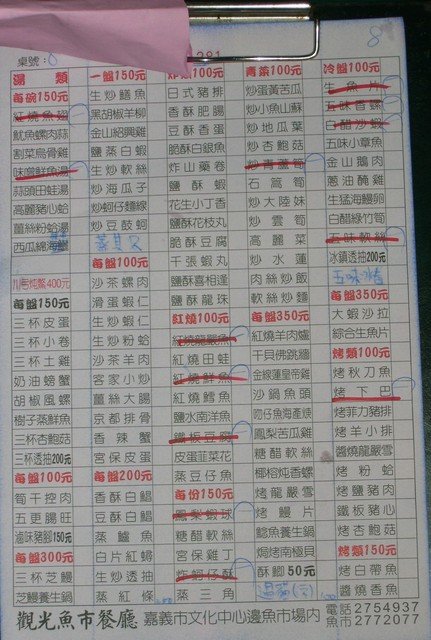 桌號:
8
281
湯類
每碗150元
紅燒魚翅
魷魚螺肉蒜
割菜烏骨雞
味噌鮮魚湯
蒜頭田蛙湯
高麗豬心蛤
薑絲粉蛤湯
西瓜綿海鱺
每盤150元
三杯皮蛋
三杯小卷
三杯土雞
奶油螃蟹
胡椒風螺
樹子蒸鮮魚
三杯杏鮑菇
三杯透抽200元
每盤100元
筍干控肉
五更腸旺
滷味豬腳150元
每盤300元
三杯芝鰻
芝鰻養生鍋
一盤150元
生炒鱔魚
黑胡椒羊柳
金山紹興雞
鹽蒸白蝦
生炒軟絲
炒海瓜子
炒蚵仔麵線
炒豆鼓蚵
每盤100元
沙茶螺肉
滑蛋蝦仁
生炒蝦仁
生炒粉蛤
沙茶羊肉
客家小炒
薑絲大腸
京都排骨
香辣蟹
宮保皮蛋
每盤200元
香酥白鯧
豆酥白鯧
蒸鱸魚
白片紅蟳
生炒透抽
蒸紅條
炸類100元
日式豬排
香酥肥腸
豆酥香蛋
脆酥白銀魚
炸山藥卷
鹽酥蝦
花生小丁香
鹽酥花枝丸
脆酥豆腐
千張蝦丸
鹽酥喜相逢
鹽酥龍珠
紅燒100元
紅燒龍嚴魚
紅燒田蛙
紅燒鮮魚
紅燒鱈魚
鹽水南洋魚
鐵板豆腐
皮蛋韮菜花
蒸豆仔魚
每份150元
鳳梨蝦球
糖醋軟絲
宮保雞丁
炸蚵仔酥
蒸三角
青菜100元
炒蛋黃苦瓜
炒小魚山蘇
炒地瓜葉
炒杏鮑菇
炒青蘆筍
石蓮筍
炒大陸妹
炒雲筍
高麗菜
炒水蓮
肉絲炒飯
軟絲炒麵
每盤350元
紅燒羊肉爐
干貝佛跳牆
金線蓮皇帝雞
沙鍋魚頭
吻仔魚海產煲
鳳梨苦瓜雞
糖醋軟絲
椰榕炖香螺
烤龍嚴雪
烤鰻片
鯰魚養生鍋
焗烤南極貝
酥腳50元
冷盤100元
生魚片
五味香螺
白醋沙蝦
五味小章魚
金山鵝肉
蔥油醃雞
生猛海鰻卵
白醋綠竹筍
五味軟絲
冰鎮透抽200元
五味
每盤350元
大蝦沙拉
綜合生魚片
烤類100元
烤秋刀魚
烤下巴
烤菲力豬排
烤羊小排
醬燒龍嚴雪
烤粉蛤
烤鹽豬肉
鐵板豬心
烤杏鮑菇
烤類150元
烤白帶魚
醬燒香魚
觀光魚市餐廳
嘉義市文化中心邊魚市場內
電話 2754937
魚市 2772077